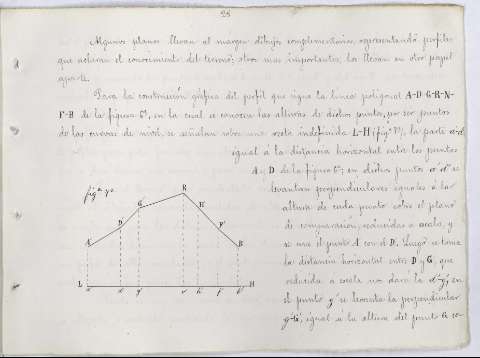 28
Algunos planos llevan al margen dibujos complementarios, representando perfiles
que aclaran el conocimiento del terreno; otros mas importantes, los llevan en otro papel
aparte.
Para la construcción gráfica del perfil que sigue la linea poligonal A-D-G-R-N-
F-B de la figura 6ª, en la cual se conocen las alturas de dichos puntos, por ser puntos
de las curvas de nivel, se señalan sobre una recta indefinida L-H (figª 7ª), la parte a'-d'
igual á la distancia horizontal entre los puntos
A y D de la figura 6ª; en dichos puntos a' d' se
levantan perpendiculares iguales á las
alturas de cada punto sobre el plano
de comparación, reducidas a escala, y
se une el punto A con el D. Luego se toma
la distancia horizontal entre D y G, que
reducida á escala nos dará la d'-g', en
el punto g' se levanta la perpendicular
g'-G', igual á la altura del punto G so-
figª 7ª
A' D' G' R N' F' B'
L a' d' g' r' n' f' b' H